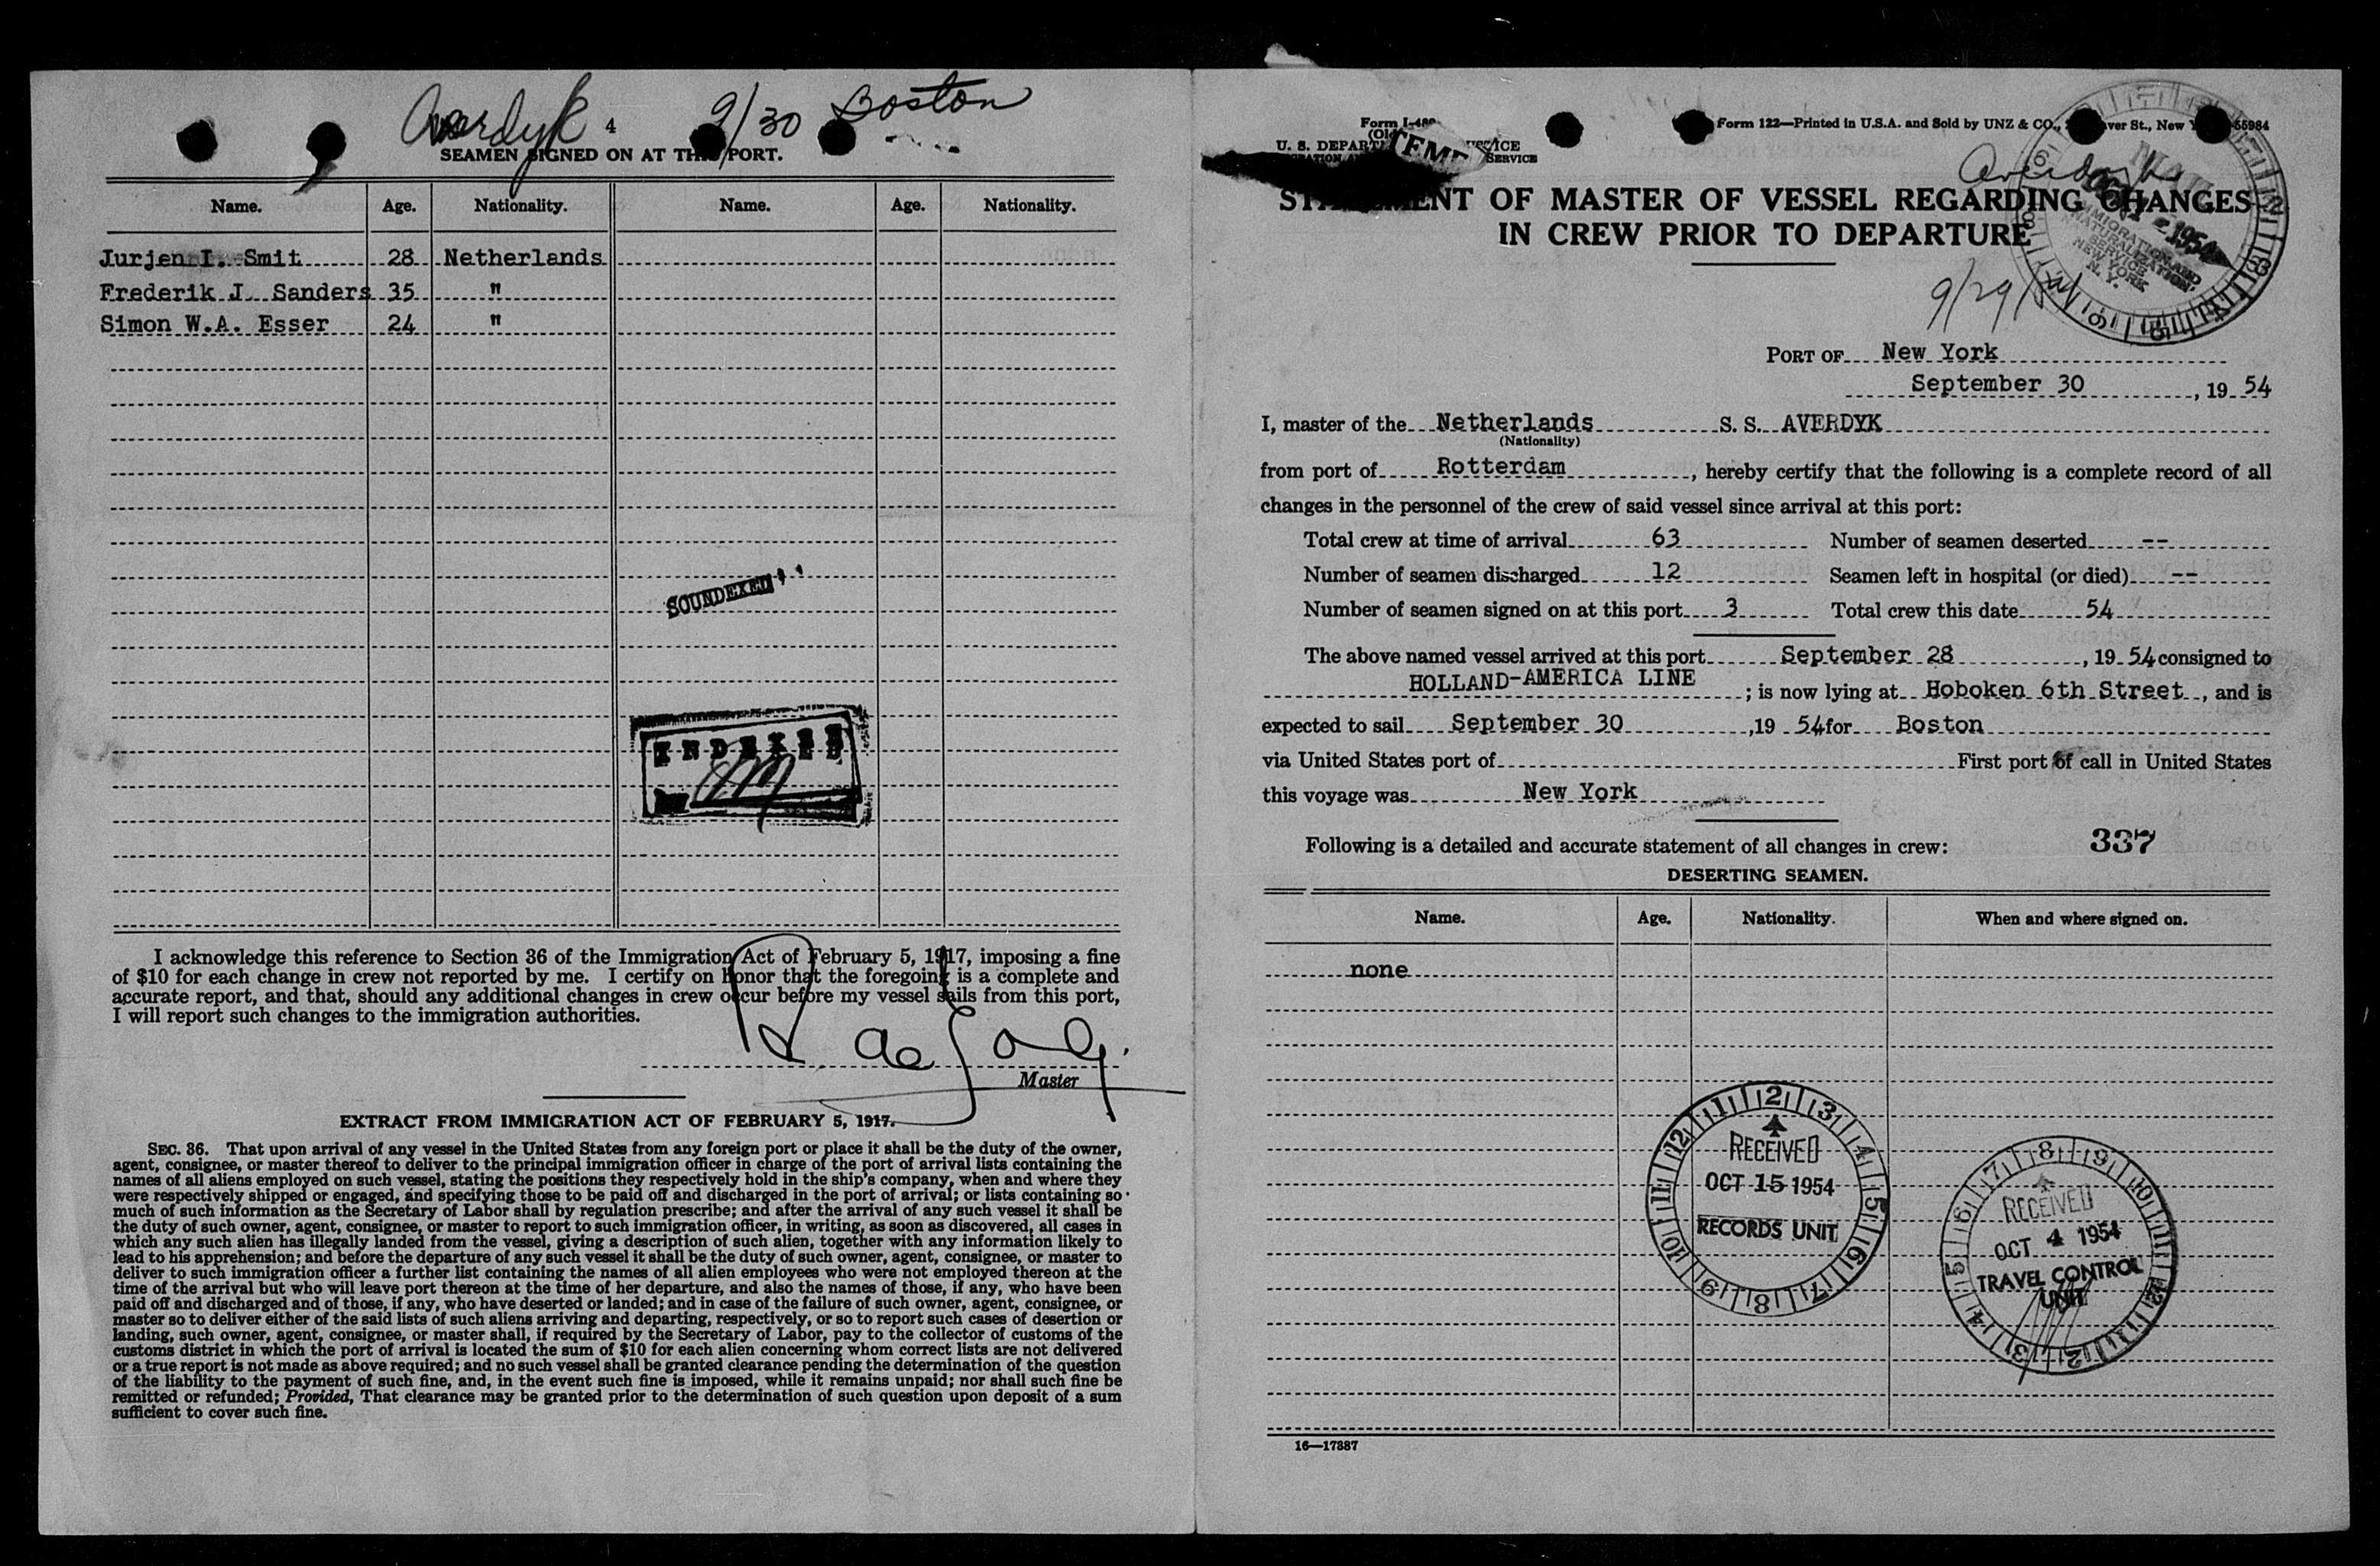 Averdyk 9/30 Boston
4
SEAMEN SIGNED ON AT THIS PORT.
Name. Age. Nationality. Name. Age. Nationality.
Jurjen I. Smit 28 Netherlands
Frederik J. Sanders 35 "
Simon W.A. Esser 24 "
SOUNDEXED
INDEXED
I acknowledge this reference to Section 36 of the Immigration Act of February 5, 1917, imposing a fine
of $10 for each change in crew not reported by me. I certify on honor that the foregoing is a complete and
accurate report, and that, should any additional changes in crew occur before my vessel sails from this port,
I will report such changes to the immigration authorities.
R. de Jong.
Master
EXTRACT FROM IMMIGRATION ACT OF FEBRUARY 5, 1917.
SEC. 36. That upon arrival of any vessel in the United States from any foreign port or place it shall be the duty of the owner,
agent, consignee, or master thereof to deliver to the principal immigration officer in charge of the port of arrival lists containing the
names of all aliens employed on such vessel, stating the positions they respectively hold in the ship's company, when and where they
were respectively shipped or engaged, and specifying those to be paid off and discharged in the port of arrival; or lists containing so
much of such information as the Secretary of Labor shall by regulation prescribe; and after the arrival of any such vessel it shall be
the duty of such owner, agent, consignee, or master to report to such immigration officer, in writing, as soon as discovered, all cases in
which any such alien has illegally landed from the vessel, giving a description of such alien, together with any information likely to
lead to his apprehension; and before the departure of any such vessel it shall be the duty of such owner, agent, consignee, or master to
deliver to such immigration officer a further list containing the names of all alien employees who were not employed thereon at the
time of the arrival but who will leave port thereon at the time of her departure, and also the names of those, if any, who have been
paid off and discharged and of those, if any, who have deserted or landed; and in case of the failure of such owner, agent, consignee, or
master so to deliver either of the said lists of such aliens arriving and departing, respectively, or so to report such cases of desertion or
landing, such owner, agent, consignee, or master shall, if required by the Secretary of Labor, pay to the collector of customs of the
customs district in which the port of arrival is located the sum of $10 for each alien concerning whom correct lists are not delivered
or a true report is not made as above required; and no such vessel shall be granted clearance pending the determination of the question
of the liability to the payment of such fine, and, in the event such fine is imposed, while it remains unpaid; nor shall such fine be
remitted or refunded; Provided, That clearance may be granted prior to the determination of such question upon deposit of a sum
sufficient to cover such fine.
Form I-489
Form 122—Printed in U.S.A. and Sold by UNZ & CO., St., New 55984
U. S. DEPART
SERVICE
Averdyk
STATEMENT OF MASTER OF VESSEL REGARDING CHANGES
IN CREW PRIOR TO DEPARTURE
1954
IMMIGRATION AND
NATURALIZATION
SERVICE
NEW YORK
N. Y.
9/29
PORT OF New York
September 30, 19 54
I, master of the Netherlands S. S. AVERDYK
(Nationality)
from port of Rotterdam, hereby certify that the following is a complete record of all
changes in the personnel of the crew of said vessel since arrival at this port:
Total crew at time of arrival 63 Number of seamen deserted --
Number of seamen discharged 12 Seamen left in hospital (or died) --
Number of seamen signed on at this port 3 Total crew this date 54
The above named vessel arrived at this port September 28, 19 54 consigned to
HOLLAND-AMERICA LINE; is now lying at Hoboken 6th Street, and is
expected to sail September 30, 19 54 for Boston
via United States port of First port of call in United States
this voyage was New York
Following is a detailed and accurate statement of all changes in crew: 337
DESERTING SEAMEN.
Name. Age. Nationality. When and where signed on.
none
RECEIVED
OCT 15 1954
RECORDS UNIT
RECEIVED
OCT 4 1954
TRAVEL CONTROL
UNIT
16—17887